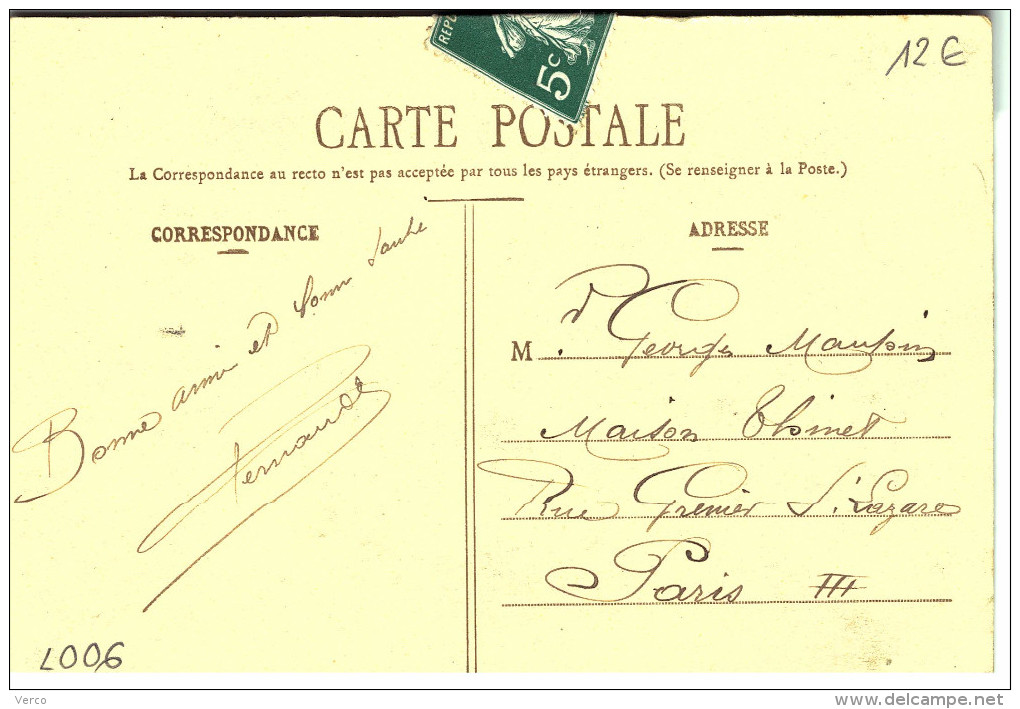 REPU
5c
12 €
CARTE POSTALE
La Correspondance au recto n'est pas acceptée par tous les pays étrangers. (Se renseigner à la Poste.)
CORRESPONDANCE
Bonne année et bonne santé
Fernande
ADRESSE
M.
Georges Maupin
Maison Thinet
Rue Grenier St Lazare
Paris III
L006
Verco
www.delcampe.net